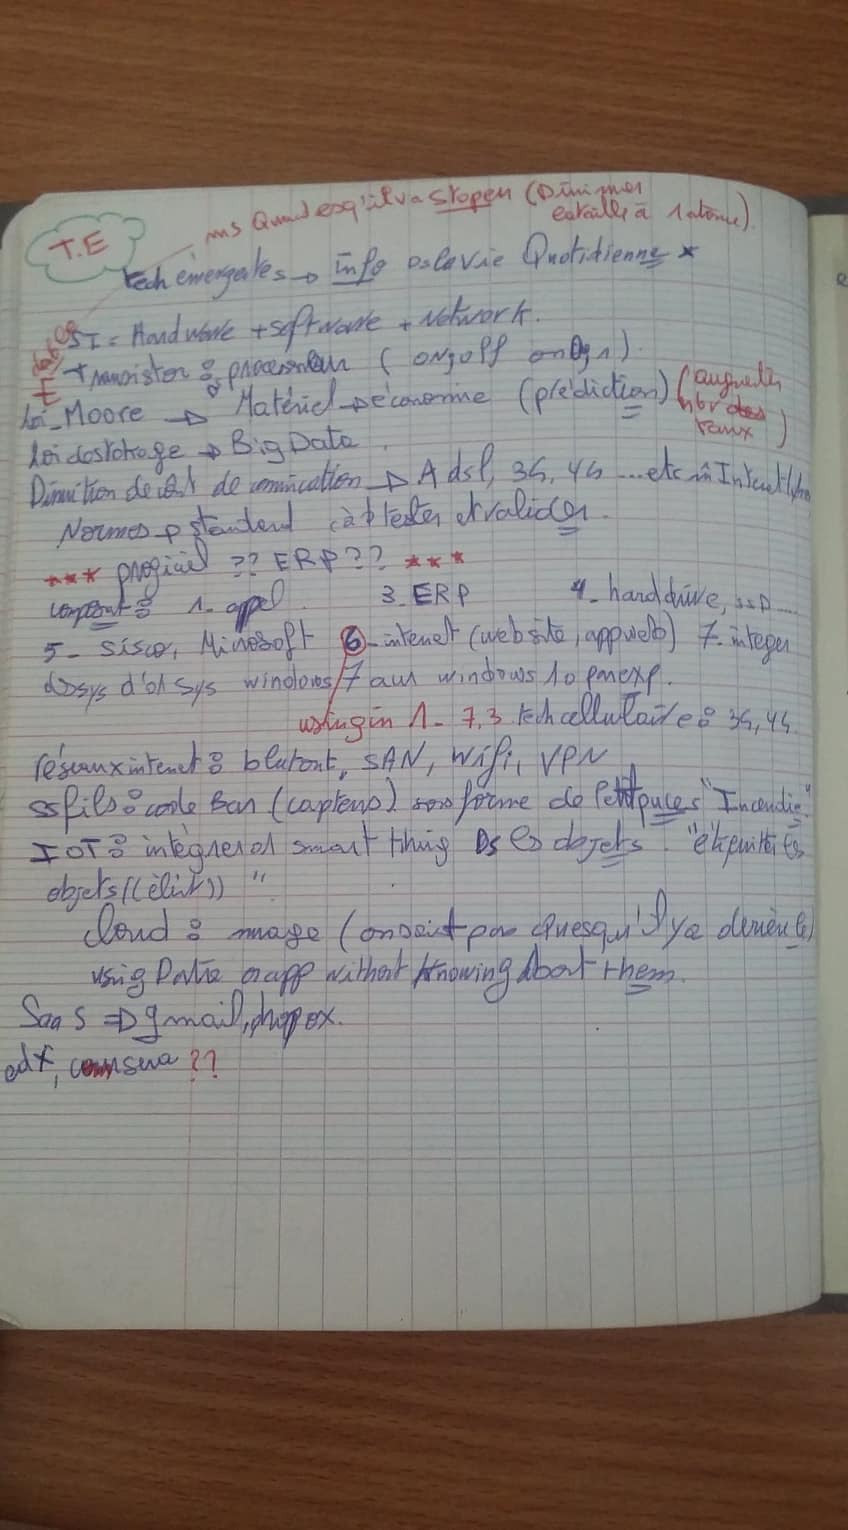 ms Quand esq'il va stopen (Diminuer
la taille à 1 atome).
T.E
tech émergentes → info ds la vie Quotidienne *
SI = Hardware + software + Network.
+ datas
Transistor : processeur ( on, off on 0, 1 ).
Loi_Moore → Matériel → économie (prédiction) (augmenter nbr des
taux )
Loi de stockage → Big Data.
Diminution de coût de comunication → Adsl, 3G, 4G ... etc Internet
Normes → standard càd tester et valider.
*** progiciel ?? ERP ?? ***
composant : 1_ appel 3_ ERP 4_ hard drive, ssD ....
5_ sisco, Microsoft 6_ internet (web site, app web) 7_ intégrer
d'old sys windows 7 aux windows 10 par exp.
using in 1_ 7,3 tech cellulaire : 3G, 4G
réseaux internet : blutout, SAN, Wifi, VPN
ss fils : code Bar (capteurs) sous forme de Petit puces "Incendie"
IOT : intégrer smart thing Ds les objets. "
objets ((élir)) ".
Cloud : nuage (on sait pas quesqu'il y a derière)
using Data or app without knowing About them.
SaaS ⇒ gmail,
edx, coursera ??